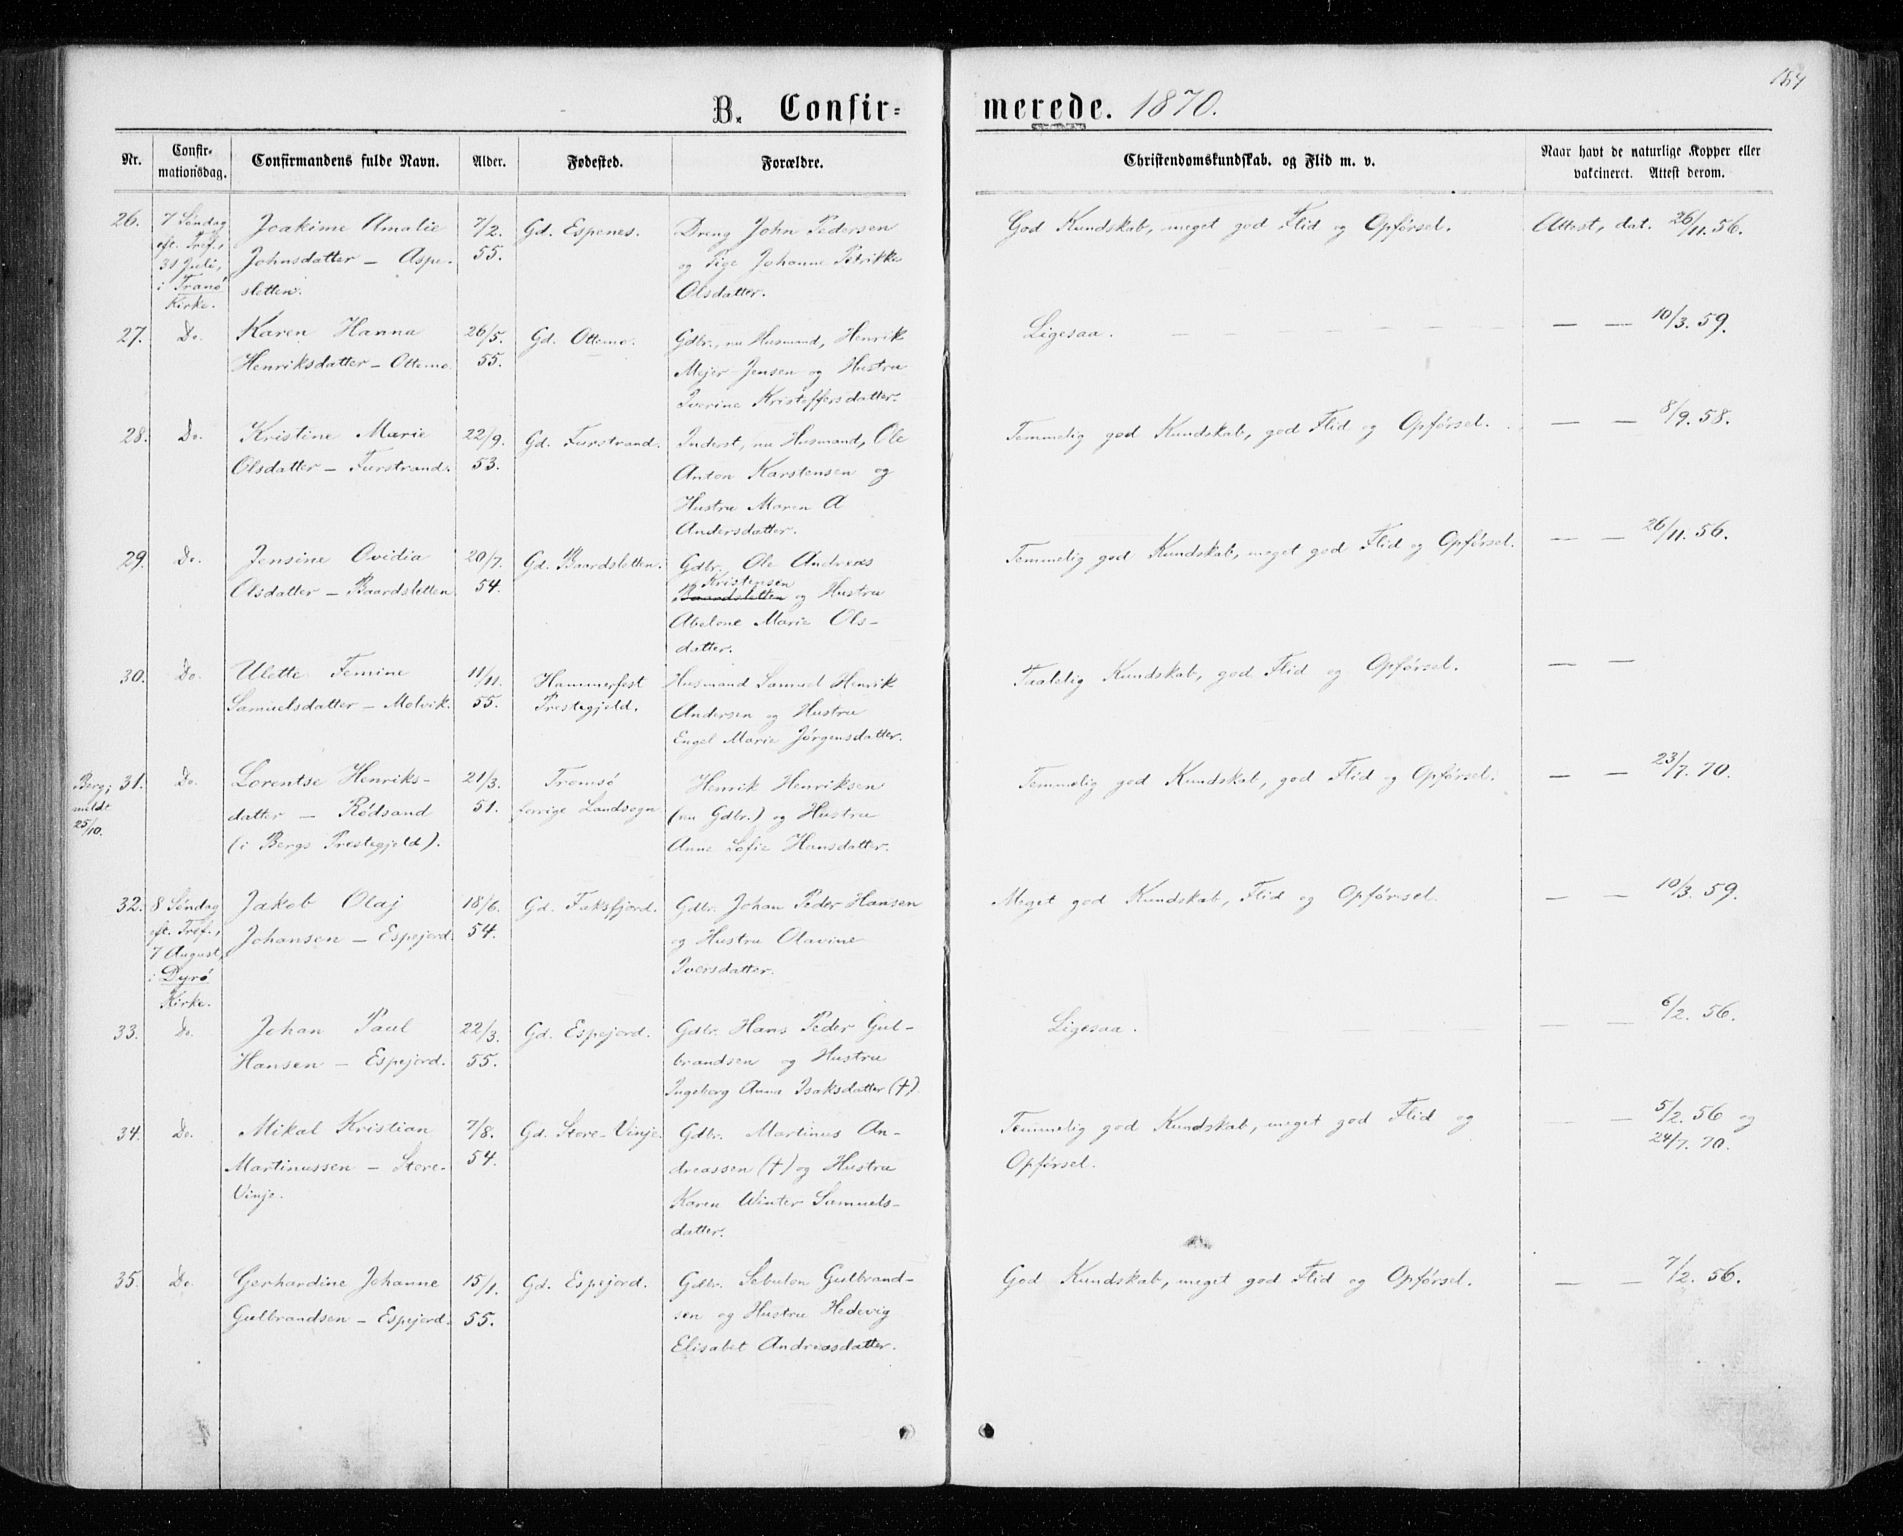 154
B. Confir=
merede. 1870.
Nr.
Confir-
mationsdag.
Confirmandens fulde Navn.
Alder.
Fødested.
Forældre.
Christendomskundskab. og Flid m. v.
Naar havt de naturlige Kopper eller
vakcineret. Attest derom.
26. 7 Søndag Joakime Amalie 7/2. Gd. Espenes. Dreng John Pedersen God Kundskab, meget god Flid og Opførsel. Attest, dat. 26/11. 56.
eft. Tref., Johnsdatter – Aspe- 55. og Pige Johanne Petrikke
31 Juli, sletten. Olsdatter.
i Tranø
Kirke.
27. Do. Karen Hanna 26/5. Gd. Ottemo. Gdbr., nu Husmand, Henrik Ligesaa. — — 10/3. 59.
Henriksdatter – Ottemo. 55. Mejer Jensen og Hustru
Iverine Kristoffersdatter.
28. Do. Kristine Marie 22/9. Gd. Furstrand. Inderst, nu Husmand, Ole Temmelig god Kundskab, god Flid og Opførsel. — — 8/9. 58.
Olsdatter – Furstrand. 53. Anton Karstensen og
Hustru Maren A
Andersdatter.
29. Do. Jensine Ovidia 20/7. Gd. Baardsletten. Gdbr. Ole Andreas Temmelig god Kundskab, meget god Flid og Opførsel. — — 26/11. 56.
Kristensen
Olsdatter – Baardsletten 54. Baardsletten og Hustru
Abelone Marie Ols-
datter.
30. Do. Ulette Femine 11/11. Hammerfest Husmand Samuel Henrik Taalelig Kundskab, god Flid og Opførsel. — —
Samuelsdatter – Molvik. 55. Prestegjeld. Andersen og Hustru
Engel Marie Jørgensdatter.
Berg; 31. Do. Lorentse Henriks- 21/3. Tromsø Henrik Henriksen Temmelig god Kundskab, god Flid og Opførsel. — — 23/7. 70.
meldt datter – Rødsand 51. forrige Landsogn (nu Gdbr.) og Hustru
25/10. (i Bergs Prestegjeld). Anne Sofie Hansdatter.
32. 8 Søndag Jakob Olaj 18/6. Gd. Faksfjord. Gdbr. Johan Peder Hansen Meget god Kundskab, Flid og Opførsel. — — 10/3. 59.
eft. Tref., Johansen – Espejord. 54. og Hustru Olavine
7 August, Iversdatter.
i Dyrø
Kirke.
33. Do. Johan Paul 22/3. Gd. Espejord. Gdbr. Hans Peder Gul- Ligesaa. — — 6/2. 56.
Hansen – Espejord. 55. brandsen og Hustru
Ingeborg Anna Isaksdatter (†).
34. Do. Mikal Kristian 7/8. Gd. Store-Vinje. Gdbr. Martinus An- Temmelig god Kundskab, meget god Flid og — — 5/2. 56 og
Martinussen – Store- 54. dreassen (†) og Hustru Opførsel. 24/7. 70.
Vinje. Karen Winter Samuels-
datter.
35. Do. Gerhardine Johanne 15/1. Gd. Espejord. Gdbr. Sebulon Gulbrand- God Kundskab, meget god Flid og Opførsel. — — 7/2. 56.
Gulbrandsen – Espejord. 55. sen og Hustru Hedevig
Elisabet Andreasdatter.